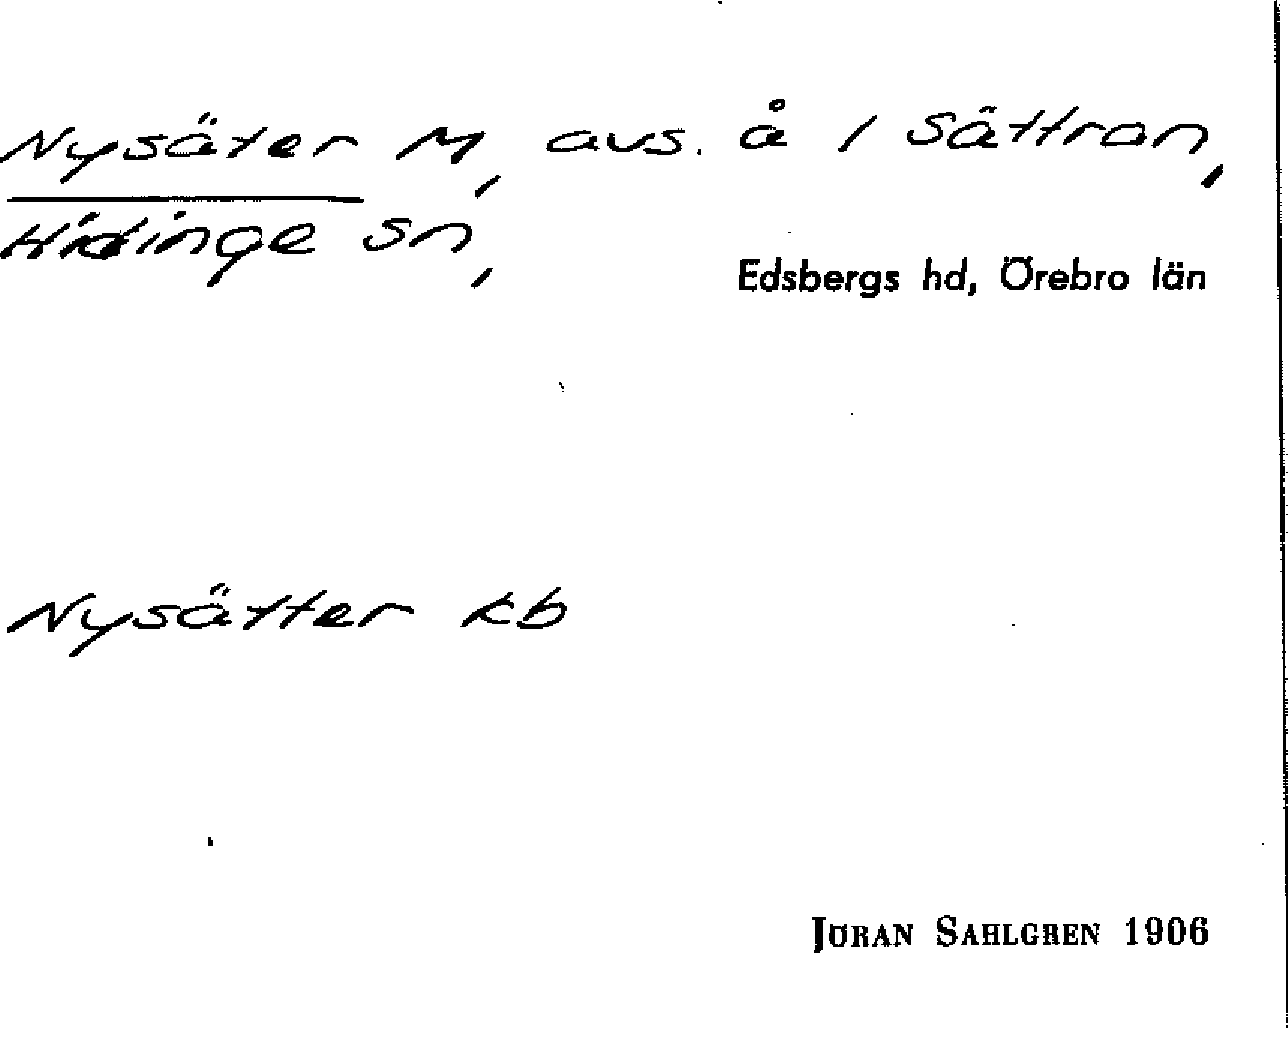 Nysäter M, avs. å 1 Sättran,
Hidinge sn,
Edsbergs hd, Örebro län
Nysätter kb
JÖRAN SAHLGREN 1906